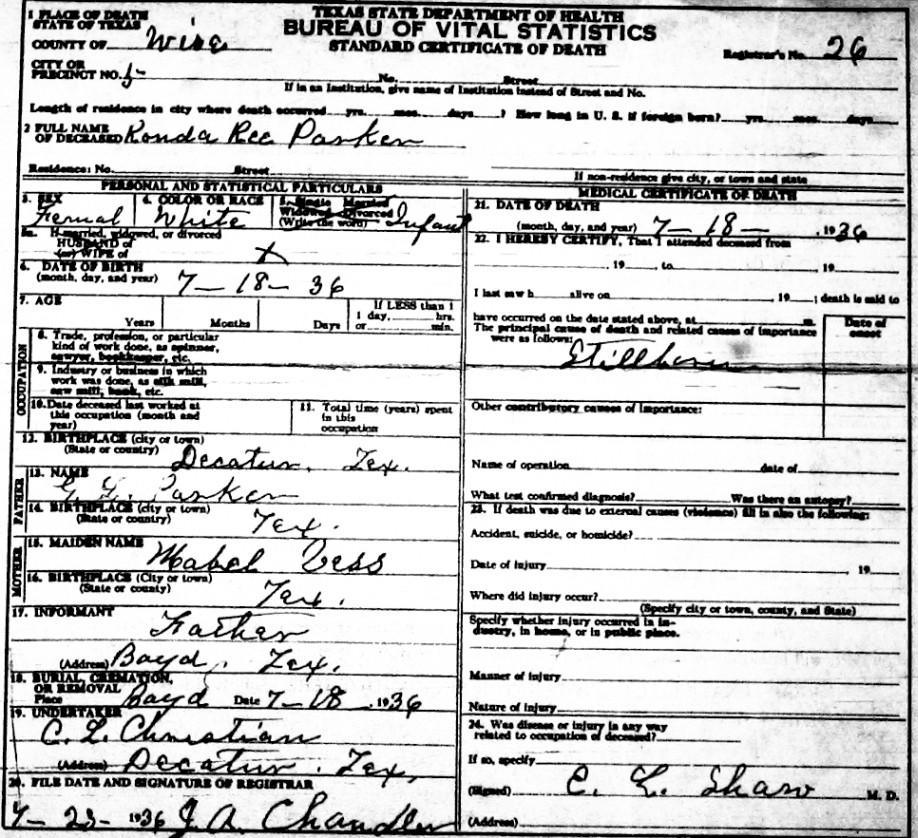 TEXAS STATE DEPARTMENT OF HEALTH
BUREAU OF VITAL STATISTICS
STANDARD CERTIFICATE OF DEATH
1 PLACE OF DEATH
STATE OF TEXAS
COUNTY OF Wise
Registrar's No. 26
CITY OR
PRECINCT NO. 5 No. Street
If in an Institution, give name of Institution instead of Street and No.
Length of residence in city where death occurred yrs. mos. days ? How long in U. S. if foreign born? yrs. mos. days
2 FULL NAME
OF DECEASED Ronda Ree Parker
Residence: No. Street
If non-residence give city, or town and state
PERSONAL AND STATISTICAL PARTICULARS
3. SEX 4. COLOR OR RACE 5. Single Married
Widowed Divorced
(Write the word)
Femal White Infant
5a. If married, widowed, or divorced
HUSBAND of
(or) WIFE of X
6. DATE OF BIRTH
(month, day, and year) 7-18-36
7. AGE
Years Months Days
If LESS than 1
1 day, hrs.
or min.
OCCUPATION
8. Trade, profession, or particular
kind of work done, as spinner,
sawyer, bookkeeper, etc.
9. Industry or business in which
work was done, as silk mill,
saw mill, bank, etc.
10. Date deceased last worked at
this occupation (month and
year)
11. Total time (years) spent
in this
occupation
12. BIRTHPLACE (city or town)
(State or country) Decatur, Tex.
FATHER
13. NAME
Parker
14. BIRTHPLACE (city or town)
(State or country) Tex.
MOTHER
15. MAIDEN NAME Mabel Vess
16. BIRTHPLACE (City or town)
(State or country) Tex.
17. INFORMANT
Father
(Address) Boyd, Tex.
18. BURIAL, CREMATION,
OR REMOVAL
Place Boyd Date 7-18, 1936
19. UNDERTAKER
C. L. Christian
(Address) Decatur, Tex.
20. FILE DATE AND SIGNATURE OF REGISTRAR
7-23- 1936 J. A. Chandler
MEDICAL CERTIFICATE OF DEATH
21. DATE OF DEATH
(month, day, and year) 7-18- , 1936
22. I HEREBY CERTIFY, That I attended deceased from
, 19 , to , 19
I last saw h alive on , 19 ; death is said to
have occurred on the date stated above, at m.
The principal cause of death and related causes of importance
were as follows:
Date of
onset
Stillborn
Other contributory causes of importance:
Name of operation date of
What test confirmed diagnosis? Was there an autopsy?
23. If death was due to external causes (violence) fill in also the following:
Accident, suicide, or homicide?
Date of injury , 19
Where did injury occur?
(Specify city or town, county, and State)
Specify whether injury occurred in in-
dustry, in home, or in public place.
Manner of injury
Nature of injury
24. Was disease or injury in any way
related to occupation of deceased?
If so, specify
(Signed) C. L. Shaw M. D.
(Address)